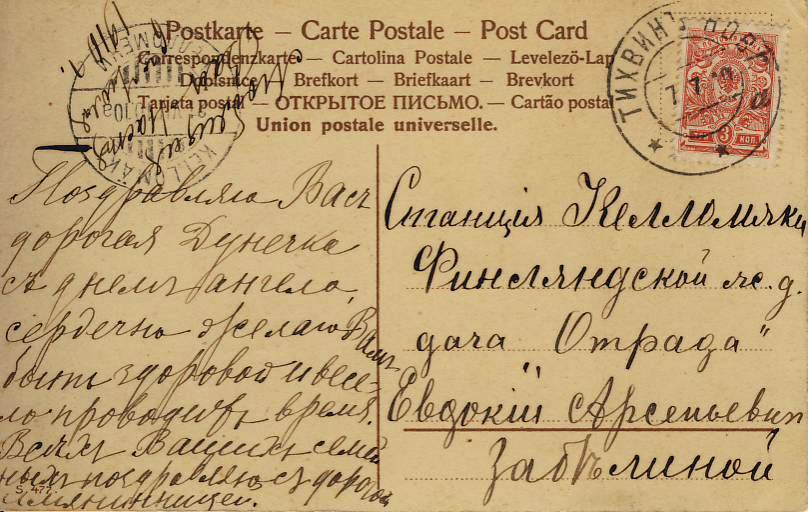 Postkarte – Carte Postale – Post Card
Correspondenzkarte – Cartolina Postale – Levelező-Lap
Dopisnice – Brefkort – Briefkaart – Brevkort
Tarjeta postal – ОТКРЫТОЕ ПИСЬМО. – Cartão postal
Union postale universelle.
ТИХВИНЪ НОВГ
3 КОП
KELLOMÄKI
КЕЛЛОМЯКИ
Поздравляю Васъ
дорогая Дунечка
съ днемъ ангела,
сердечно желаю Вамъ
быть здоровой и весе-
ло проводить время.
Всѣхъ Вашихъ семей
ныхъ поздравляю съ дорогой
имянинницей.
Станція Келломяки
Финляндской ж. д.
дача „Отрада"
Евдокіи Арсеньевнѣ
Забѣлиной
S. 477